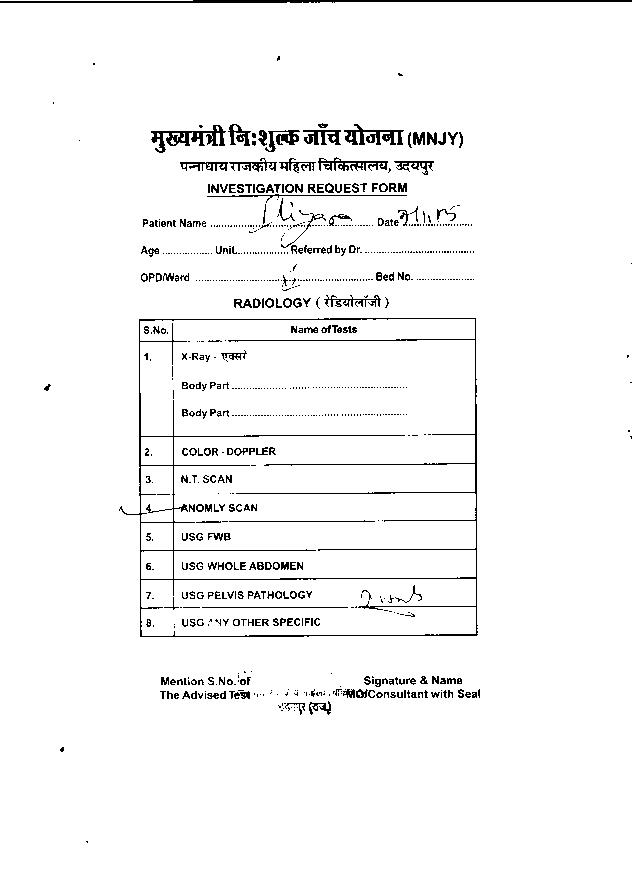 मुख्यमंत्री नि:शुल्क जाँच योजना (MNJY)
पन्नाधाय राजकीय महिला चिकित्सालय, उदयपुर
INVESTIGATION REQUEST FORM
Patient Name .................................................. Date
Age ................. Unit.................. Referred by Dr. ......................................
OPD/Ward ........................................................... Bed No. ....................
RADIOLOGY ( रेडियोलॉजी )
S.No. Name of Tests
1. X-Ray - एक्सरे
Body Part ............................................................
Body Part ............................................................
2. COLOR - DOPPLER
3. N.T. SCAN
4. ANOMLY SCAN
5. USG FWB
6. USG WHOLE ABDOMEN
7. USG PELVIS PATHOLOGY
8. USG ANY OTHER SPECIFIC
Mention S.No. of Signature & Name
The Advised Test MO/Consultant with Seal
उदयपुर (राज.)